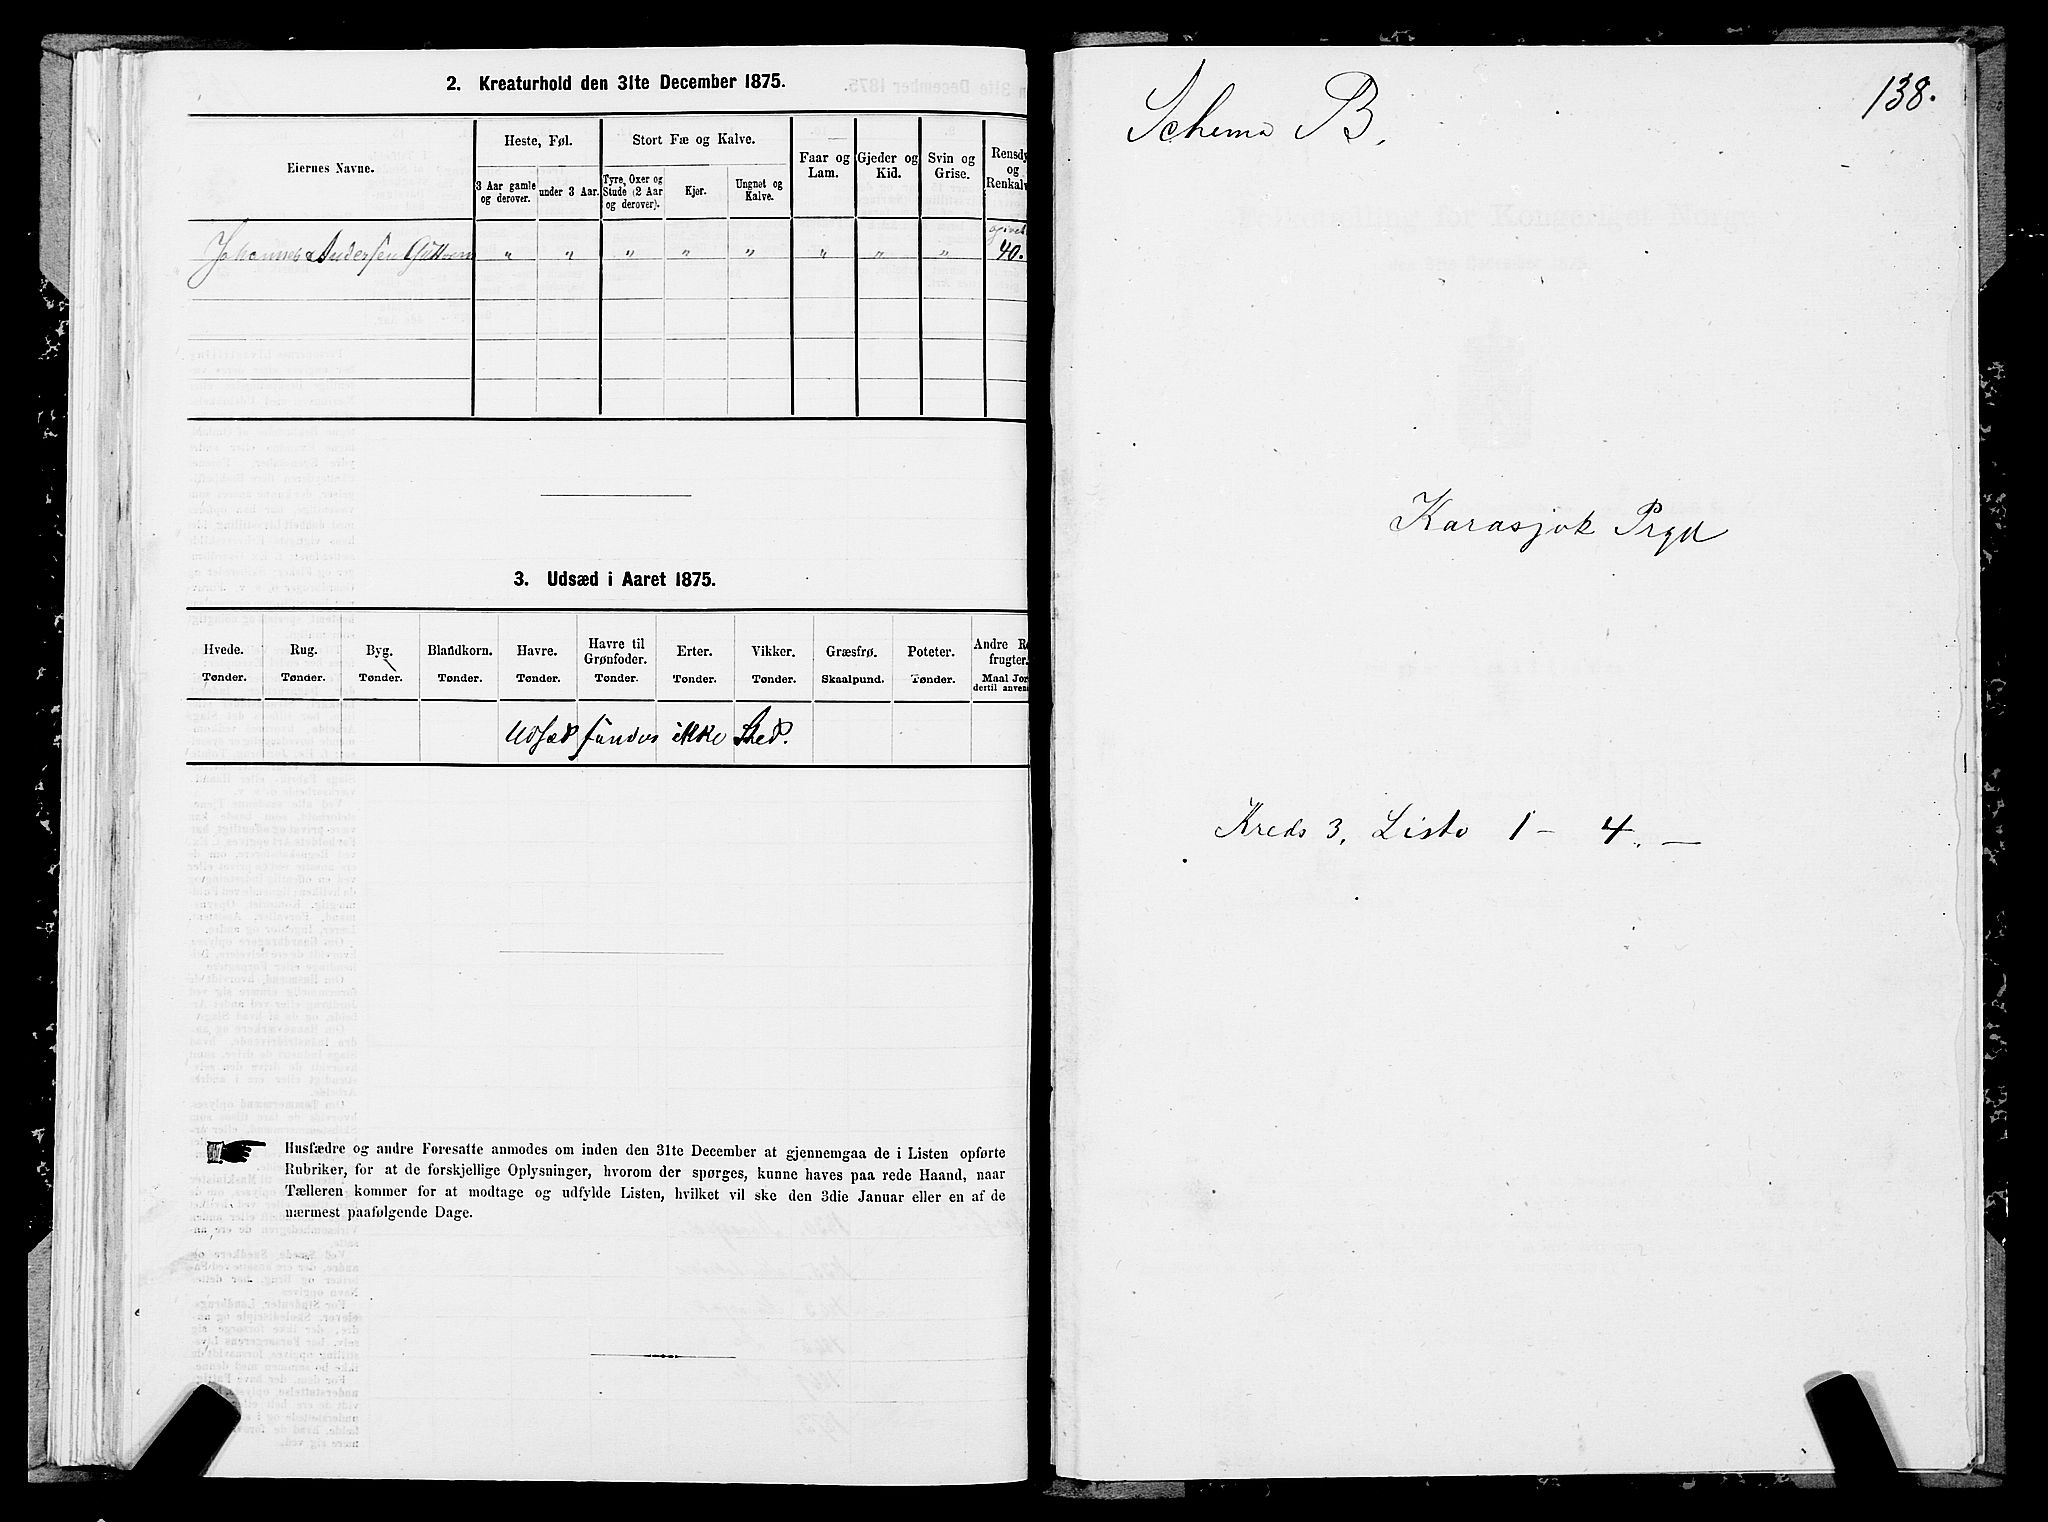 2. Kreaturhold den 31te December 1875.
Eiernes Navne.
Heste, Føl.
Stort Fæ og Kalve.
Faar og Lam.
Gjeder og Kid.
Svin og Grise.
Rensdy
og
Renkalv
3 Aar gamle og derover.
under 3 Aar.
Tyre, Oxer og Stude (2 Aar og derover).
Kjør.
Ungnøt og Kalve.
Johannes Andersen
" " " " " " " " 40.
3. Udsæd i Aaret 1875.
Hvede. Rug. Byg. Blandkorn. Havre. Havre til Grønfoder. Erter. Vikker. Græsfrø. Poteter. Andre Ro
frugter.
Tønder. Tønder. Tønder. Tønder. Tønder. Tønder. Tønder. Tønder. Skaalpund. Tønder. Maal Jor
dertil anven
Udsæd findes ikke Sted.
Husfædre og andre Foresatte anmodes om inden den 31te December at gjennemgaa de i Listen opførte
Rubriker, for at de forskjellige Oplysninger, hvorom der spørges, kunne haves paa rede Haand, naar
Tælleren kommer for at modtage og udfylde Listen, hvilket vil ske den 3die Januar eller en af de
nærmest paafølgende Dage.
138.
Schema B.
Karasjok Prgd
Kreds 3, Liste 1 – 4. —